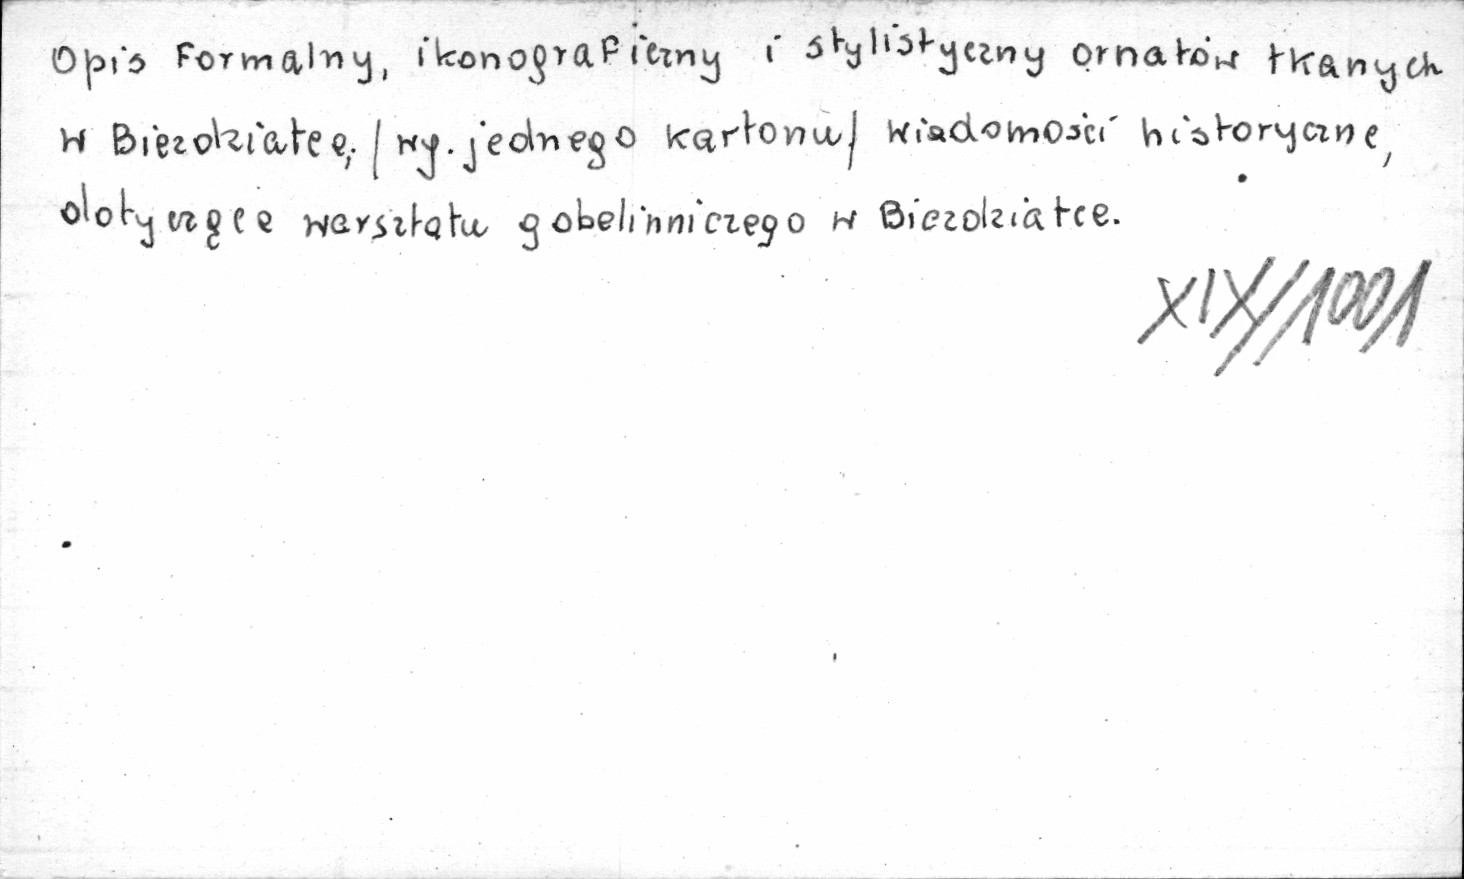 Opis formalny, ikonograficzny i stylistyczny ornatów tkanych
w Biezdziatce; /wg. jednego kartonu/ wiadomości historyczne,
dotyczące warsztatu gobelinniczego w Biezdziatce.
XIX/1001